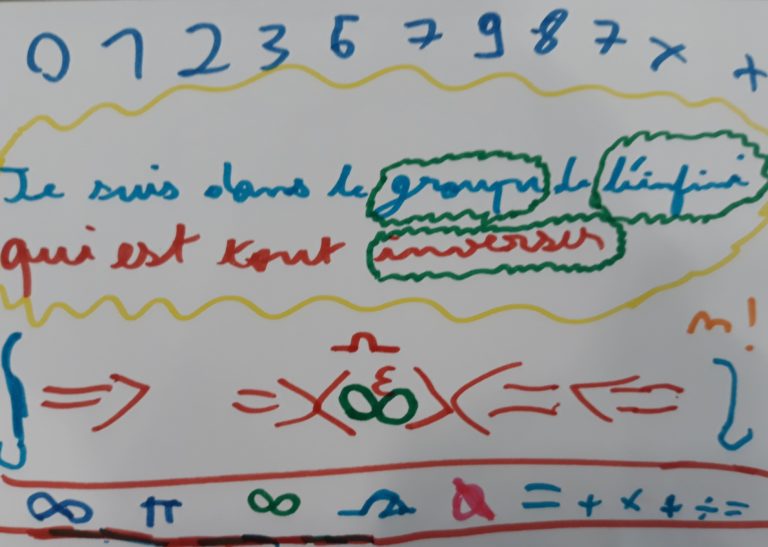 0 1 2 3 6 7 9 8 7 × +
Je suis dans le groupe de l'infini
qui est tout inverser
n!
Ω
{ ⇒ =>( ε ∞ )<= ⇐
∞ π ∞ Ω = + × + ÷ =